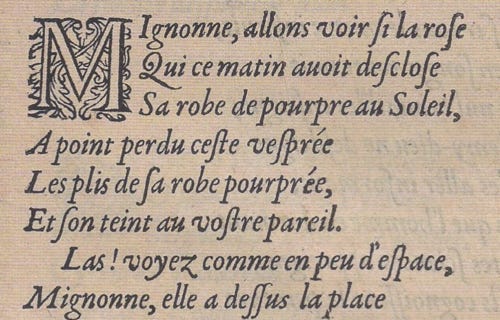 Mignonne, allons voir ſi la roſe
Qui ce matin auoit deſcloſe
Sa robe de pourpre au Soleil,
A point perdu ceſte veſprée
Les plis de ſa robe pourprée,
Et ſon teint au voſtre pareil.
Las! voyez comme en peu d'eſpace,
Mignonne, elle a deſſus la place